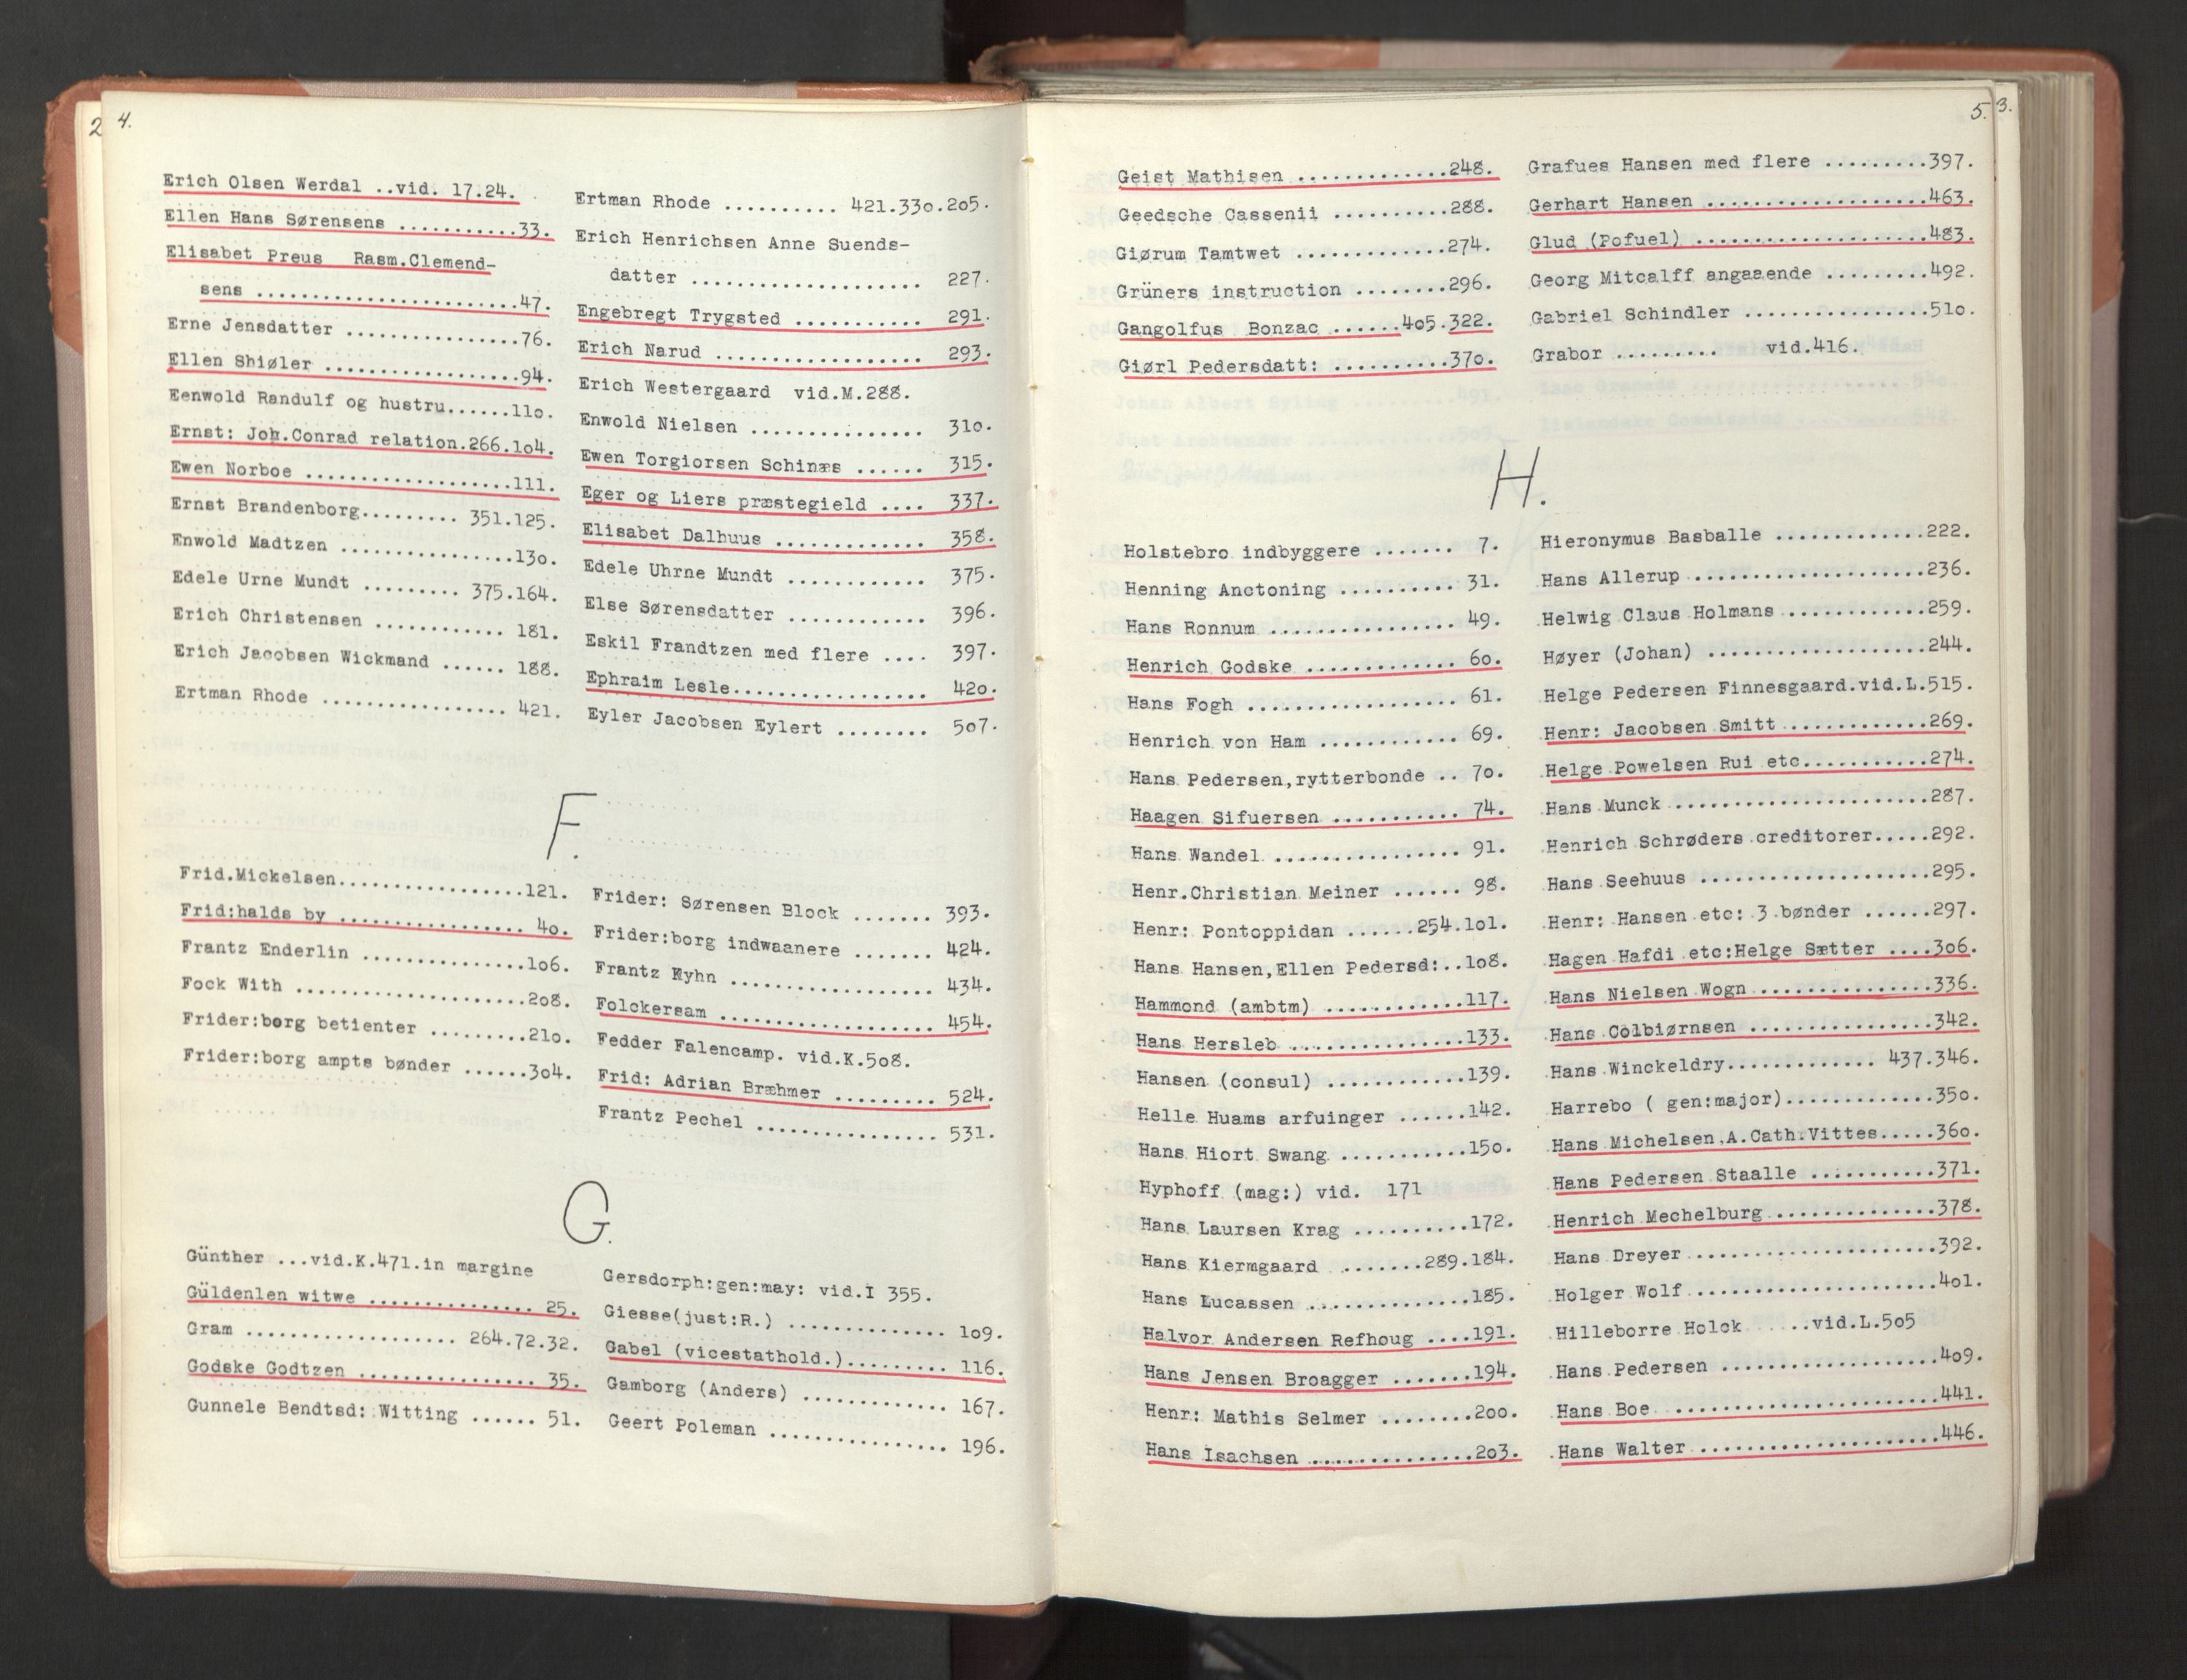 2
4.
Erich Olsen Werdal ..vid. 17.24.
Ellen Hans Sørensens ...........33.
Elisabet Preus Rasm.Clemend-
sens .......................47.
Erne Jensdatter ................76.
Ellen Shiøler ..................94.
Eenwold Randulf og hustru......11o.
Ernst: Joh.Conrad relation.266.1o4.
Ewen Norboe ...................111.
Ernst Brandenborg......... 351.125.
Enwold Madtzen ................13o.
Edele Urne Mundt ......... 375.164.
Erich Christensen ............ 181.
Erich Jacobsen Wickmand ...... 188.
Ertman Rhode ................. 421.
Ertman Rhode .......... 421.33o.2o5.
Erich Henrichsen Anne Suends-
datter .................... 227.
Engebregt Trygsted ........... 291.
Erich Narud .................. 293.
Erich Westergaard vid.M.288.
Enwold Nielsen ............... 31o.
Ewen Torgiorsen Schinæs ...... 315.
Eger og Liers præstegield .... 337.
Elisabet Dalhuus ............. 358.
Edele Uhrne Mundt ............ 375.
Else Sørensdatter ............ 396.
Eskil Frandtzen med flere .... 397.
Ephraim Lesle................. 42o.
Eyler Jacobsen Eylert ........ 5o7.
F.
Frid.Mickelsen.................121.
Frid:halds by ................ 4o.
Frantz Enderlin ...............1o6.
Fock With .....................2o8.
Frider:borg betienter .........21o.
Frider:borg ampts bønder ......3o4.
Frider: Sørensen Block ....... 393.
Frider:borg indwaanere ....... 424.
Frantz Kyhn .................. 434.
Folckersam ................... 454.
Fedder Falencamp. vid.K.5o8.
Frid: Adrian Bræhmer ......... 524.
Frantz Pechel ................ 531.
G.
Günther ...vid.K.471.in margine
Güldenlen witwe ............... 25.
Gram ................... 264.72.32.
Godske Godtzen ................ 35.
Gunnele Bendtsd: Witting ...... 51.
Gersdorph:gen:may: vid.I 355.
Giesse(just:R.) .............. 1o9.
Gabel (vicestathold.)......... 116.
Gamborg (Anders) ............. 167.
Geert Poleman ................ 196.
5.
3.
Geist Mathisen .............248.
Geedsche Cassenii ..........288.
Giørum Tamtwet .............274.
Grüners instruction ........296.
Gangolfus Bonzac ......4o5.322.
Giørl Pedersdatt: ..........37o.
Grafues Hansen med flere .........397.
Gerhart Hansen ...................463.
Glud (Pofuel) ....................483.
Georg Mitcalff angaaende .........492.
Gabriel Schindler ................51o.
Grabor ......... vid.416.
H.
Holstebro indbyggere ....... 7.
Henning Anctoning .......... 31.
Hans Ronnum ................ 49.
Henrich Godske ............. 6o.
Hans Fogh .................. 61.
Henrich von Ham ............ 69.
Hans Pedersen,rytterbonde .. 7o.
Haagen Sifuersen ........... 74.
Hans Wandel ................ 91.
Henr.Christian Meiner ...... 98.
Henr: Pontoppidan ......254.1o1.
Hans Hansen,Ellen Pedersd:..1o8.
Hammond (ambtm) ............117.
Hans Hersleb ...............133.
Hansen (consul) ............139.
Helle Huams arfuinger ......142.
Hans Hiort Swang ...........15o.
Hyphoff (mag:) vid. 171
Hans Laursen Krag ..........172.
Hans Kiermgaard .......289.184.
Hans Lucassen ..............185.
Halvor Andersen Refhoug ....191.
Hans Jensen Broagger .......194.
Henr: Mathis Selmer ........2oo.
Hans Isachsen ..............2o3.
Hieronymus Basballe .............222.
Hans Allerup ....................236.
Helwig Claus Holmans ............259.
Høyer (Johan) ...................244.
Helge Pedersen Finnesgaard.vid.L.515.
Henr: Jacobsen Smitt ............269.
Helge Powelsen Rui etc...........274.
Hans Munck ......................287.
Henrich Schrøders creditorer.....292.
Hans Seehuus ....................295.
Henr: Hansen etc: 3 bønder ......297.
Hagen Hafdi etc:Helge Sætter ....3o6.
Hans Nielsen Wogn ...............336.
Hans Colbiørnsen ................342.
Hans Winckeldry............. 437.346.
Harrebo ( gen:major).............35o.
Hans Michelsen,A.Cath.Vittes.....36o.
Hans Pedersen Staalle ...........371.
Henrich Mechelburg ..............378.
Hans Dreyer .....................392.
Holger Wolf .....................4o1.
Hilleborre Holck .....vid.L.5o5
Hans Pedersen ...................4o9.
Hans Boe ........................441.
Hans Walter .....................446.